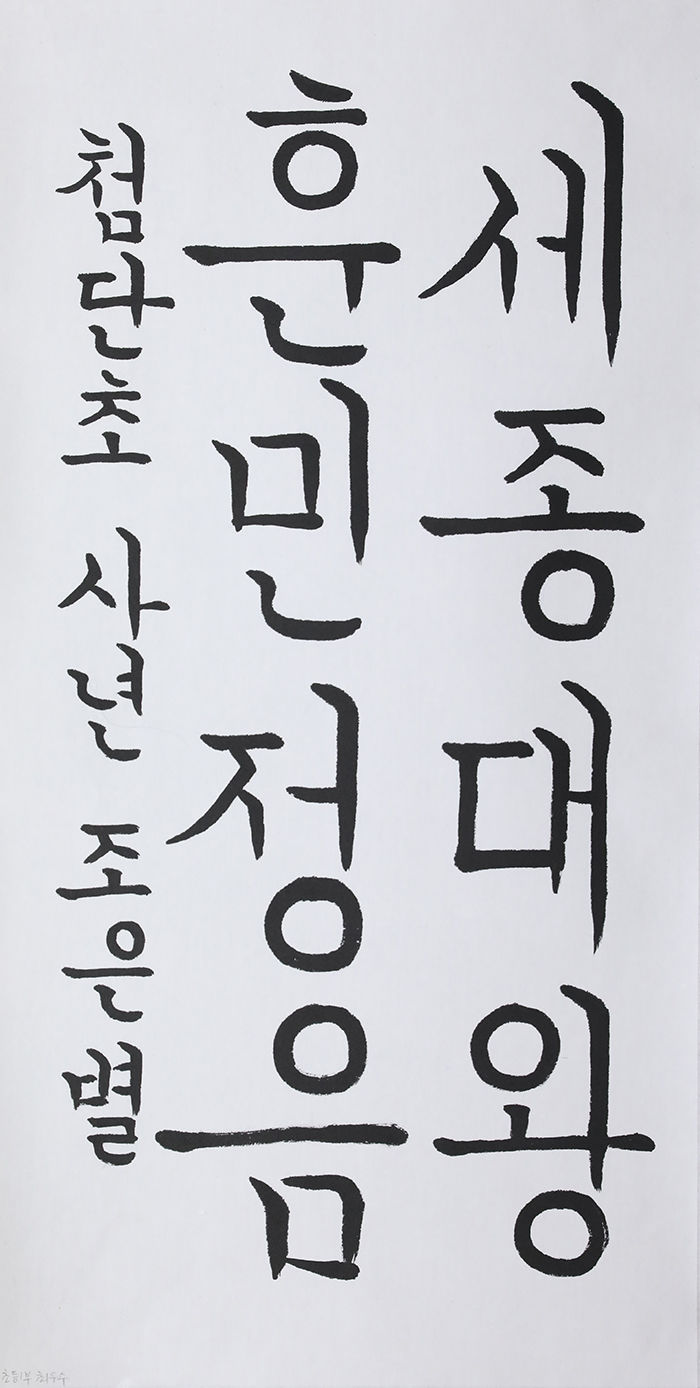 세종대왕
훈민정음
첨단초 사년 조은별
초등1부 최우수